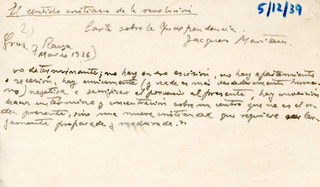 El sentido cristiano de la revolución
5/12/39
2)
Carta sobre la Independencia
Jacques Maritain
Cruz y Raya
Marzo 1936)
vo determinante, que hay en eso escisión, no hay apartamiento
o secesión, hay únicamente (y nada es más verdaderamente huma-
no) negativa a sacrificar el porvenir al presente, hay conversión
hacia un término y concentración sobre un centro que no es el or-
den presente, sino una nueva cristiandad que requiere ser lar-
gamente preparada y madurada."